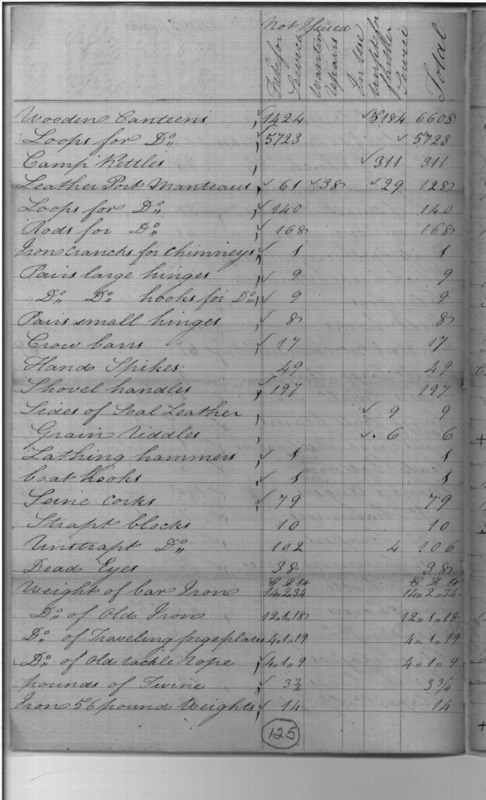 Not Issued
Fit for Service
Wanting repairs
In Use
Service
Total
Wooden Canteens 1424 5184 6608
Loops for Do 5723 5723
Camp Kettles 311 311
Leather Port Manteaus 61 38 29 128
Loops for Do 140 140
Rods for Do 168 168
Iron crancks for chimneys 1 1
Pairs large hinges 9 9
Do Do hooks for Do 9 9
Pairs small hinges 8 8
Crow bars 17 17
Hand Spikes 49 49
Shovel handles 197 197
Sides of Seal Leather 9 9
Grain Riddles 6 6
Lathing hammers 1 1
boat hooks 1 1
Seine Corks 79 79
Strapt blocks 10 10
Unstrapt Do 102 4 106
Dead Eyes 38 38
Weight of bar Iron 14.2.34 14.2.34
Do of Old Iron 12.1.18 12.1.18
Do of Traveling forge plates 4.1.19 4.1.19
Do of Old tackle Rope 4.1.9 4.1.9
pounds of Twine 3½ 3½
Iron 56 pound Weights 14 14
125